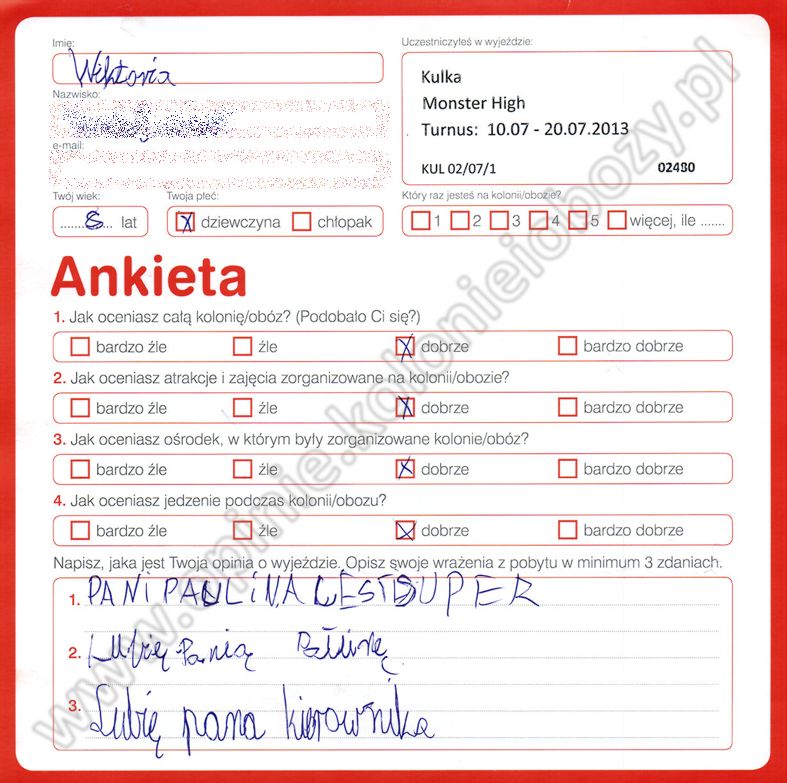 Imię:
Uczestniczyłeś w wyjeździe:
Wiktoria
Kulka
Monster High
Turnus: 10.07 - 20.07.2013
KUL 02/07/1 02480
Nazwisko:
e-mail:
Twój wiek:
Twoja płeć:
Który raz jesteś na kolonii/obozie?
........8.... lat
X dziewczyna chłopak
1 2 3 4 5 więcej, ile .......
Ankieta
1. Jak oceniasz całą kolonię/obóz? (Podobało Ci się?)
bardzo źle źle X dobrze bardzo dobrze
2. Jak oceniasz atrakcje i zajęcia zorganizowane na kolonii/obozie?
bardzo źle źle X dobrze bardzo dobrze
3. Jak oceniasz ośrodek, w którym były zorganizowane kolonie/obóz?
bardzo źle źle X dobrze bardzo dobrze
4. Jak oceniasz jedzenie podczas kolonii/obozu?
bardzo źle źle X dobrze bardzo dobrze
Napisz, jaka jest Twoja opinia o wyjeździe. Opisz swoje wrażenia z pobytu w minimum 3 zdaniach.
1. PANI PAULINA JEST SUPER
2. Lubię Panią
3. Lubię pana kierownika
www.opinie.kolonieiobozy.pl